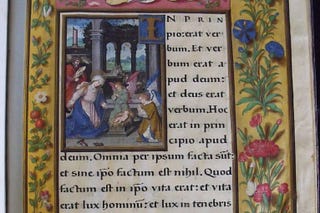 IN PRIN
pio: erat ver
bum. Et ver
bum erat a
pud deum:
et deus erat
verbum. Hoc
erat in prin
cipio apud
deum. Omnia per ipsum facta sūt:
et sine ip̄o factum est nihil. Quod
factum est in ip̄o vita erat: et vita
erat lux hominū: et lux in tenebris